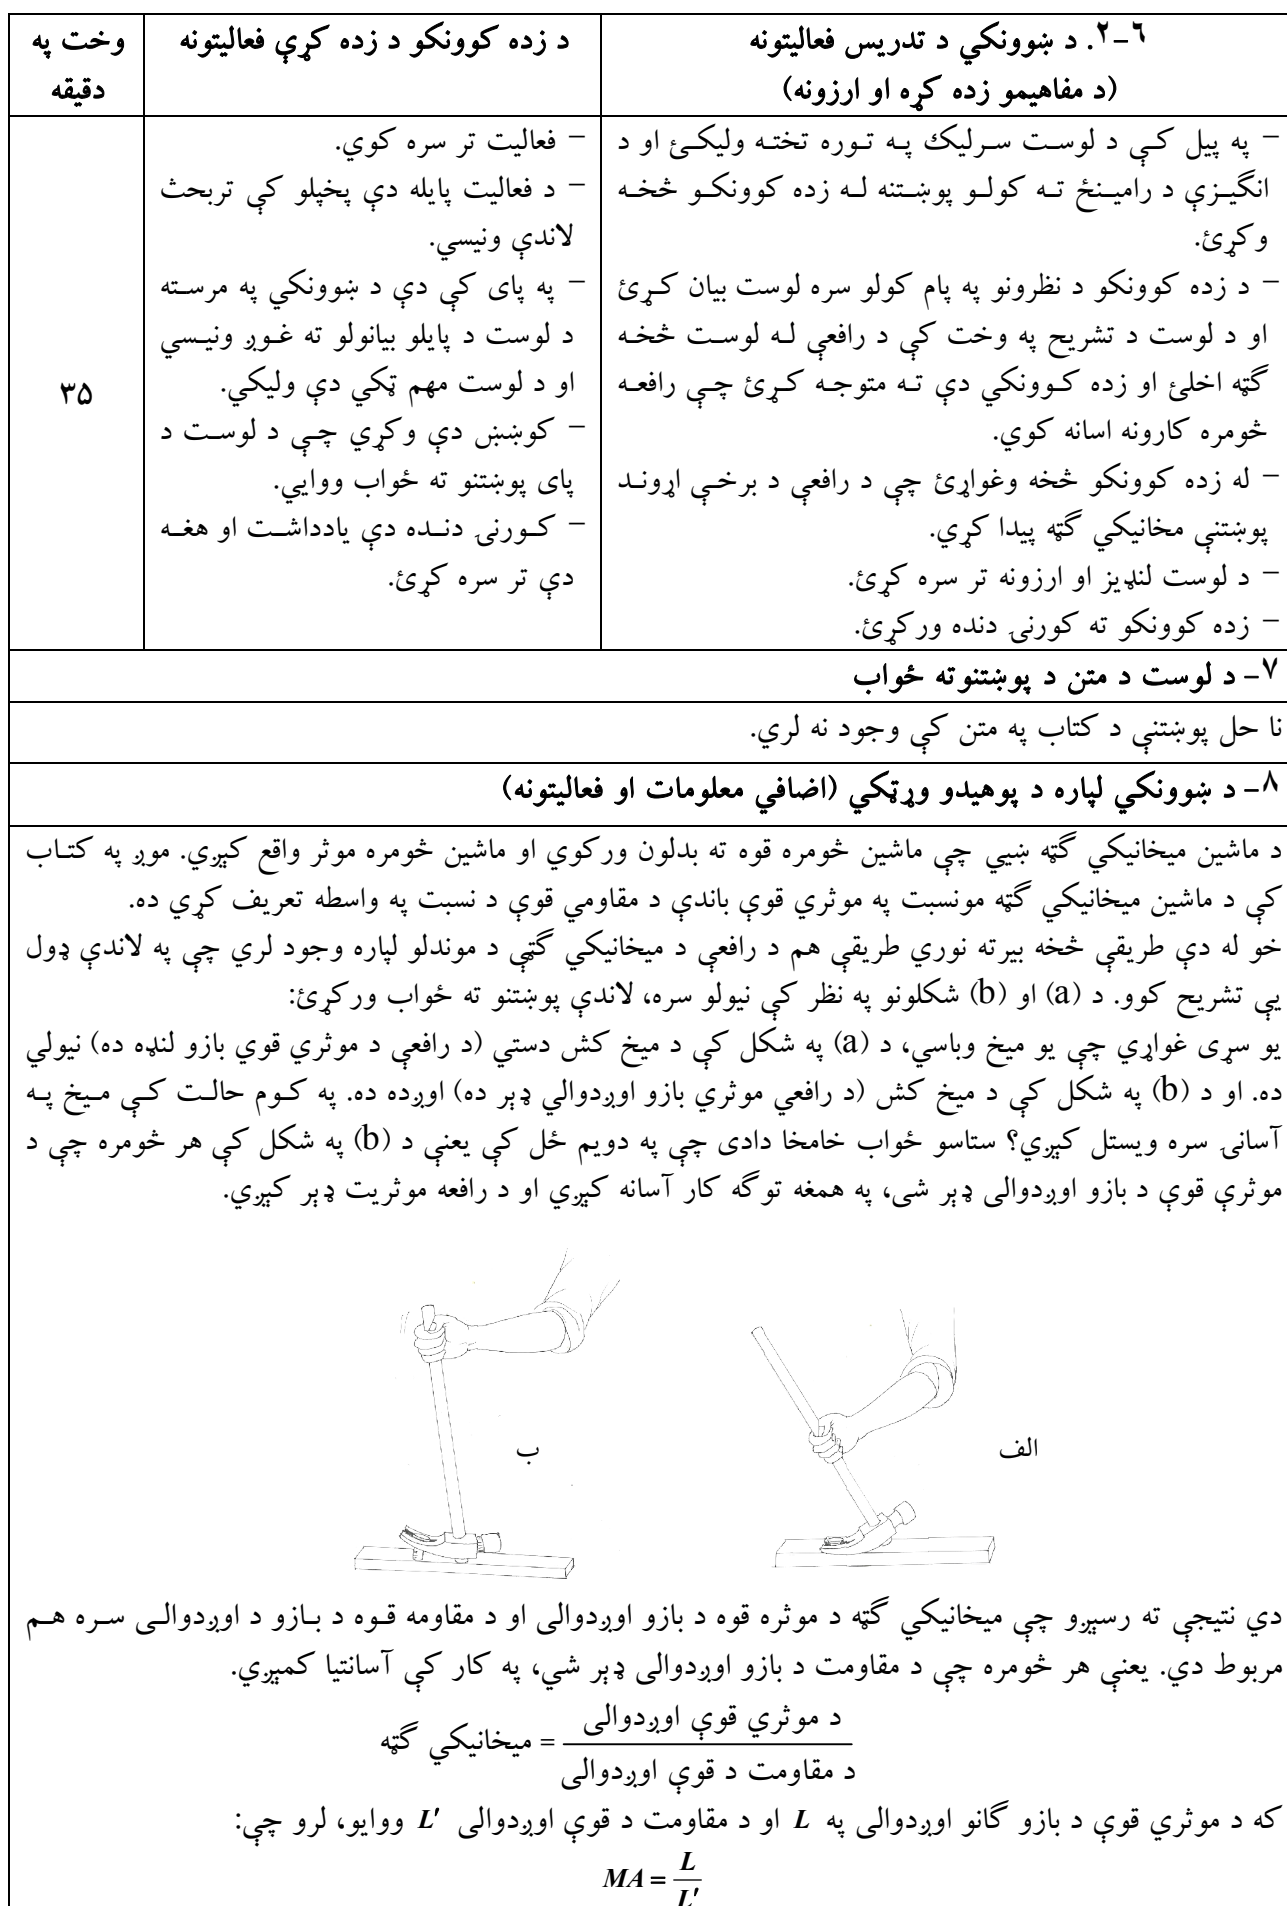 ۶-۲. د ښوونکي د تدریس فعالیتونه
(د مفاهیمو زده کړه او ارزونه)
د زده کوونکو د زده کړې فعالیتونه
وخت په
دقیقه
– په پیل کې د لوست سرلیک په توره تخته ولیکئ او د
انگیزې د رامینځ ته کولو پوښتنه له زده کوونکو څخه
وکړئ.
– د زده کوونکو د نظرونو په پام کولو سره لوست بیان کړئ
او د لوست د تشریح په وخت کې د رافعې له لوست څخه
گټه اخلئ او زده کوونکي دې ته متوجه کړئ چې رافعه
څومره کارونه اسانه کوي.
– له زده کوونکو څخه وغواړئ چې د رافعې د برخې اړوند
پوښتنې مخانیکي گټه پیدا کړي.
– د لوست لنډیز او ارزونه تر سره کړئ.
– زده کوونکو ته کورنۍ دنده ورکړئ.
– فعالیت تر سره کوي.
– د فعالیت پایله دې پخپلو کې تربحث
لاندې ونیسي.
– په پای کې دې د ښوونکي په مرسته
د لوست د پایلو بیانولو ته غوږ ونیسي
او د لوست مهم ټکي دې ولیکي.
– کوښښ دې وکړي چې د لوست د
پای پوښتنو ته ځواب ووایي.
– کورنۍ دنده دې یادداشت او هغه
دې تر سره کړئ.
۳۵
۷- د لوست د متن د پوښتنوته ځواب
نا حل پوښتنې د کتاب په متن کې وجود نه لري.
۸- د ښوونکي لپاره د پوهیدو وړټکي (اضافي معلومات او فعالیتونه)
د ماشین میخانیکي گټه ښیي چې ماشین څومره قوه ته بدلون ورکوي او ماشین څومره موثر واقع کیږي. موږ په کتاب
کې د ماشین میخانیکي گټه مونسبت په موثرې قوې باندې د مقاومي قوې د نسبت په واسطه تعریف کړي ده.
خو له دې طریقې څخه بیرته نورې طریقې هم د رافعې د میخانیکي گټې د موندلو لپاره وجود لري چې په لاندې ډول
یې تشریح کوو. د (a) او (b) شکلونو په نظر کې نیولو سره، لاندې پوښتنو ته ځواب ورکړئ:
یو سړی غواړي چې یو میخ وباسي، د (a) په شکل کې د میخ کش دستي (د رافعې د موثرې قوې بازو لنډه ده) نیولي
ده. او د (b) په شکل کې د میخ کش (د رافعې موثرې بازو اوږدوالي ډېر ده) اوږده ده. په کوم حالت کې میخ په
آسانۍ سره ویستل کیږي؟ ستاسو ځواب خامخا دادی چې په دویم ځل کې یعنې د (b) په شکل کې هر څومره چې د
موثرې قوې د بازو اوږدوالی ډېر شی، په همغه توگه کار آسانه کیږي او د رافعه موثریت ډېر کیږي.
الف
ب
دې نتیجې ته رسیږو چې میخانیکي گټه د موثره قوه د بازو اوږدوالی او د مقاومه قوه د بازو د اوږدوالی سره هم
مربوط دي. یعنې هر څومره چې د مقاومت د بازو اوږدوالی ډېر شي، په کار کې آسانتیا کمیږي.
میخانیکي گټه = د موثرې قوې اوږدوالی
د مقاومت د قوې اوږدوالی
که د موثرې قوې د بازو گانو اوږدوالی په L او د مقاومت د قوې اوږدوالی L′ ووایو، لرو چې:
MA = L
L′